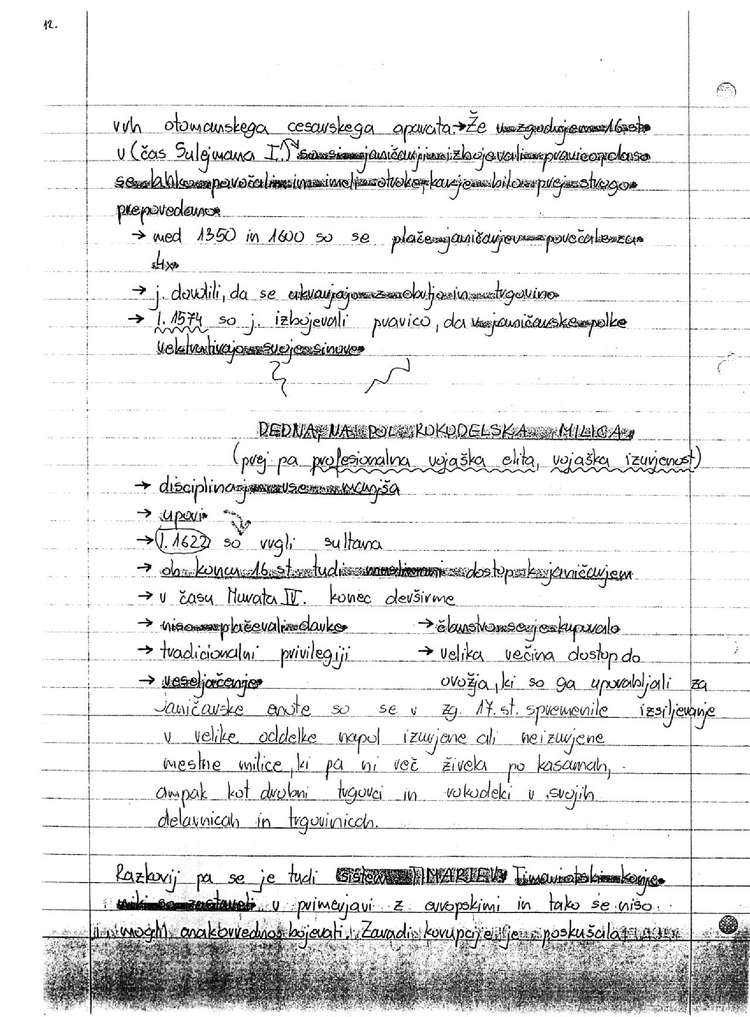 12.
vrh otomanskega cesarskega aparata. → Že v zgodnjem 16. st.
v (čas Sulejmana I.) so si janičarji izbojevali pravico, da so
se lahko poročali in imeli otroke, kar jem bilo prej strogo
prepovedano.
→ med 1350 in 1600 so se plače janičarjev povečale za
4x
→ j. dovolili, da se ukvarjajo z obrtjo in trgovino
→ l. 1574 so j. izbojevali pravico, da v janičarske polke
rekrutirajo svoje sinove
DEDNA, NA POL ROKODELSKA MILICA
(prej pa profesionalna vojaška elita, vojaška izurjenost)
→ disciplina je vse manjša
→ upori
→ l. 1622 so vrgli sultana
→ ob koncu 16. st. tudi muslimani dostop k janičarjem
→ v času Murata IV. konec devširme
→ niso plačevali davkov → članstvo se je kupovalo
→ tradicionalni privilegiji → velika večina dostop do
→ veseljačenje orožja, ki so ga uporabljali za
Janičarske enote so se v zg. 17. st. spremenile izsiljevanje
v velike oddelke napol izurjene ali neizurjene
mestne milice, ki pa ni več živela po kasarnah,
ampak kot drobni trgovci in rokodelci v svojih
delavnicah in trgovinicah.
Razkroj pa se je tudi sistem TIMARJEV. Timariotski konje-
niki so zastareli v primerjavi z evropskimi in tako se niso
mogli enakovredno bojevati. Zaradi korupcije je poskušala